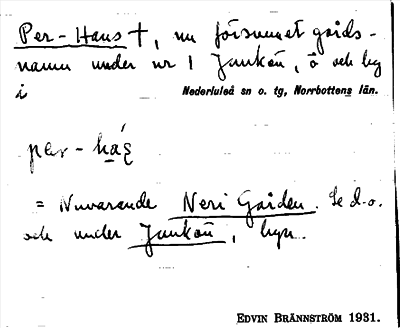 Per-Hans †, nu försvunnet gårds-
namn under nr 1 Jankön, ö och by
i Nederluleå sn o. tg, Norrbottens län.
pær-
= Nuvarande Neri Gården. Se d.o.
och under Jankön, byn.
EDVIN BRÄNNSTRÖM 1931.